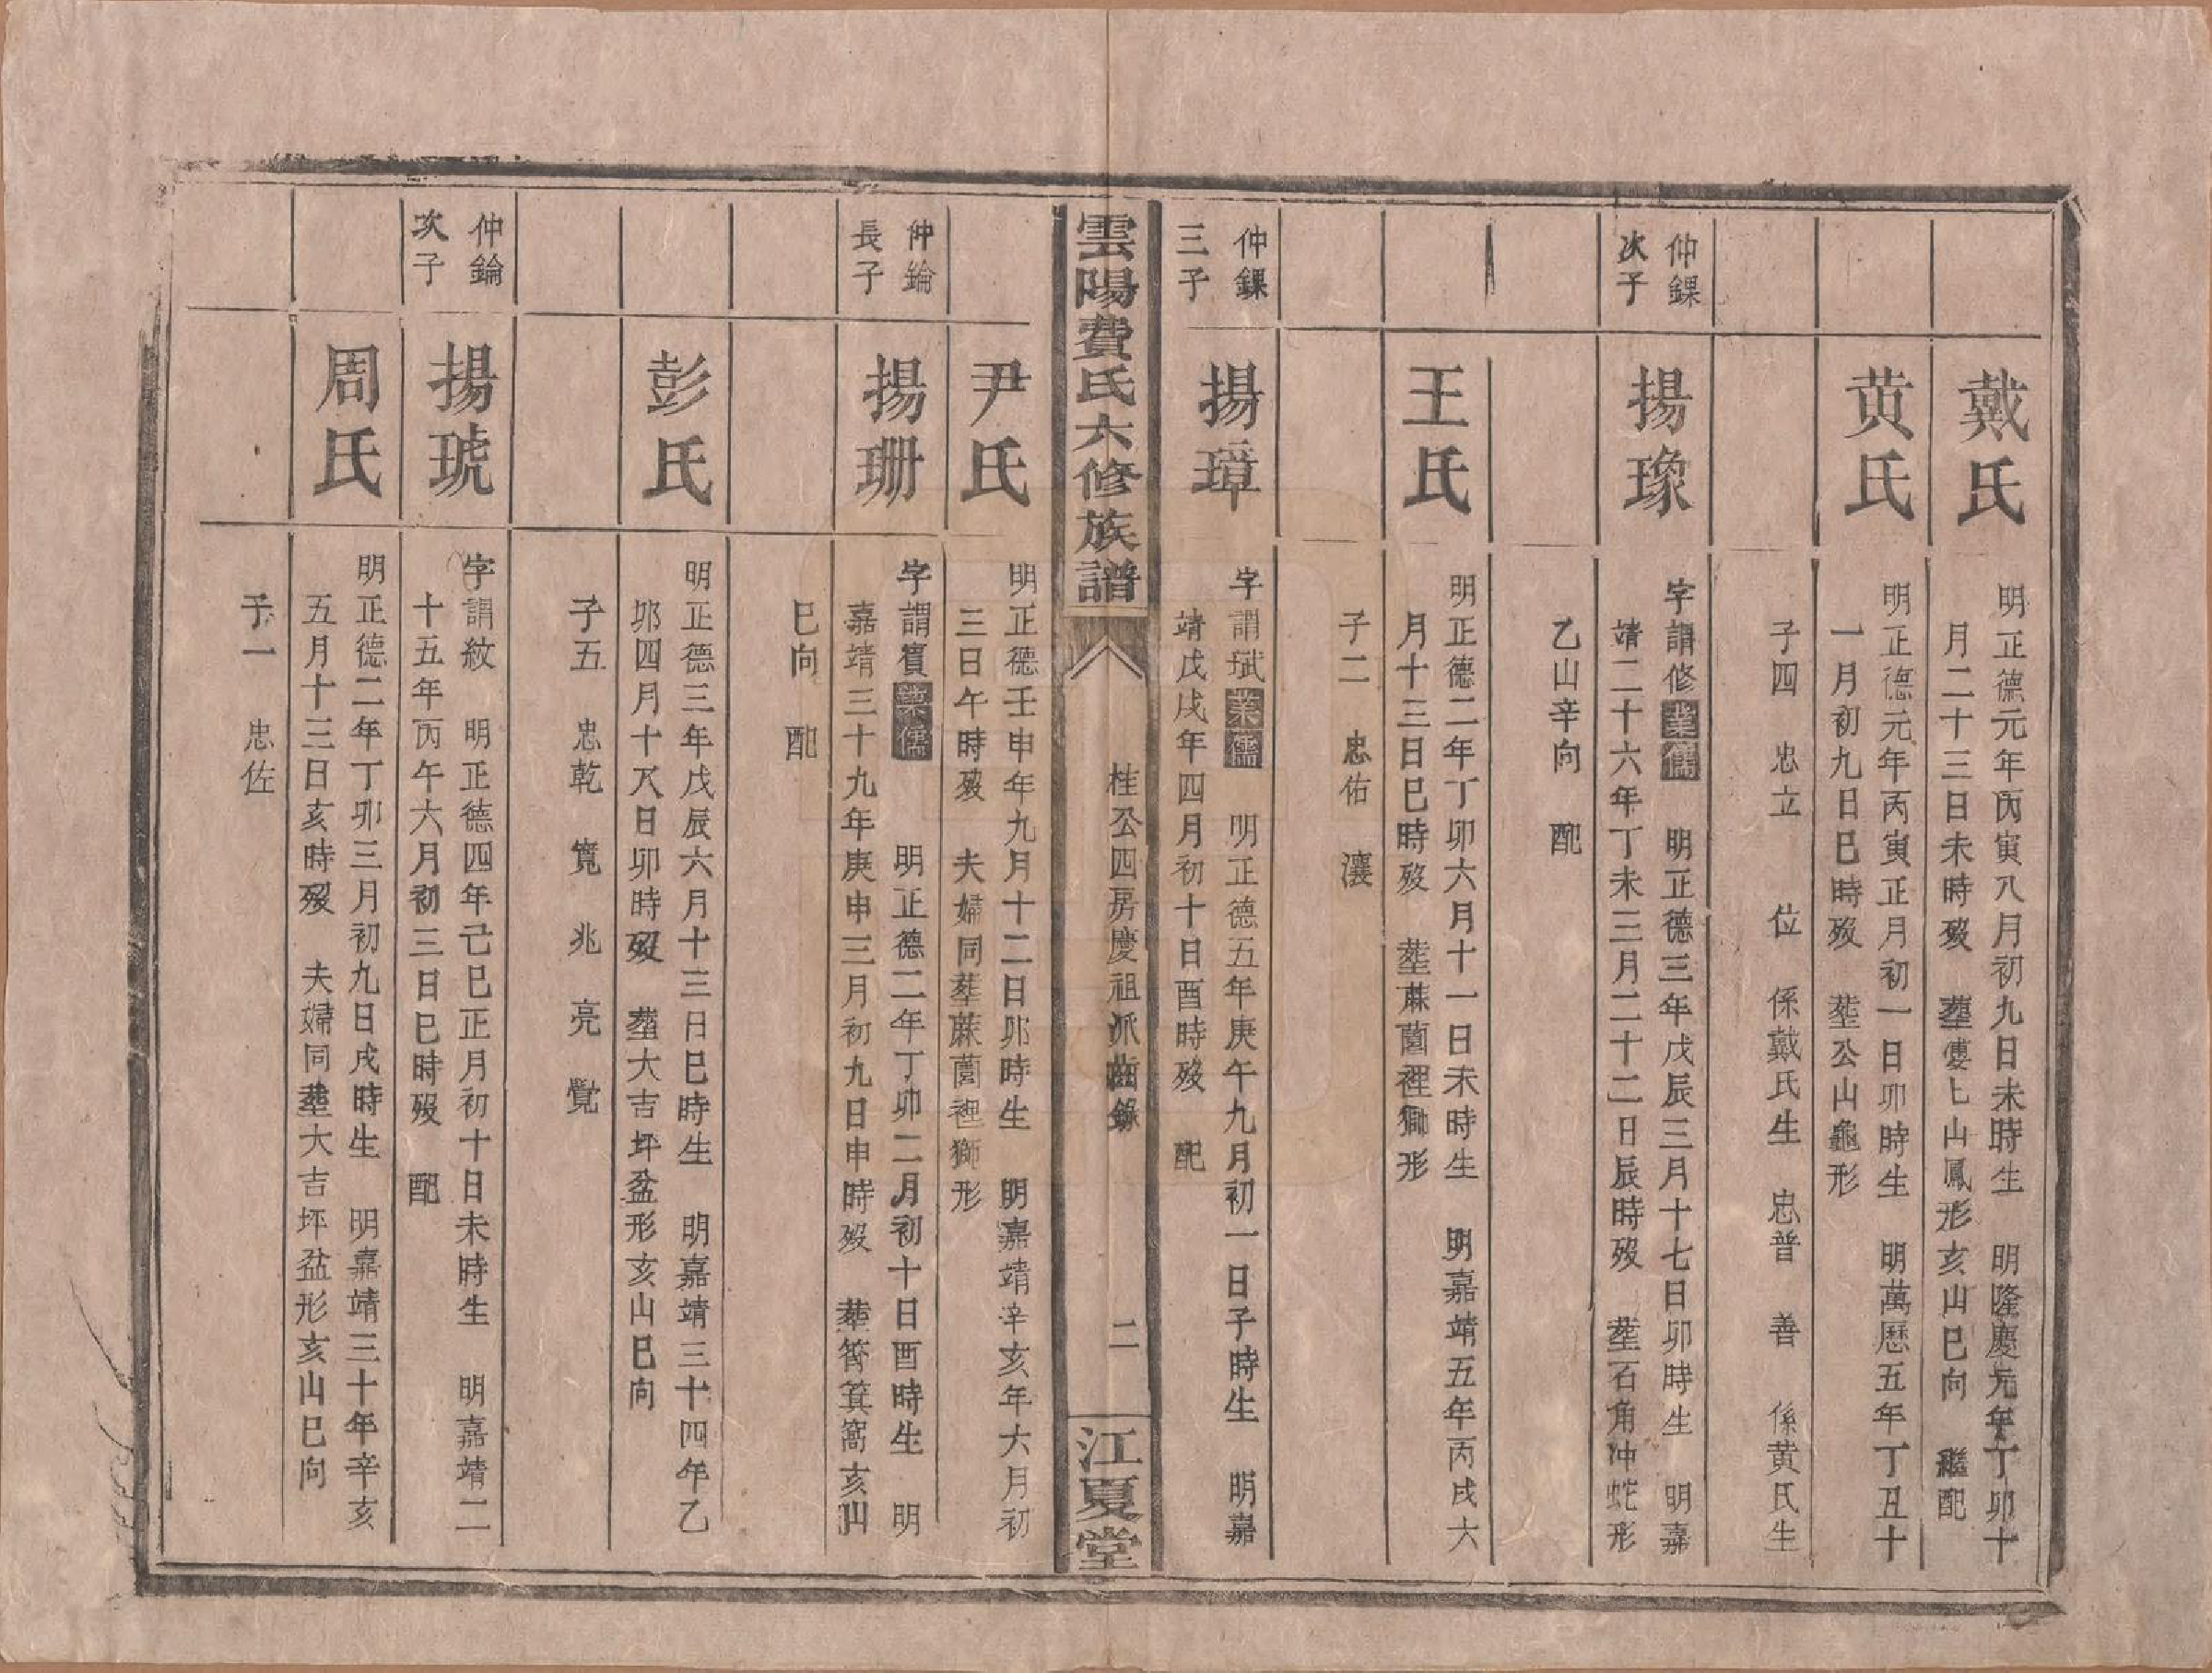 戴氏
明正德元年丙寅八月初九日未時生　明隆慶元年丁卯十
月二十三日未時歿　塟山鳳形亥山巳向　繼配
黄氏
明正德元年丙寅正月初一日卯時生　明萬歷五年丁丑十
一月初九日巳時歿　塟公山龜形
子四　忠立　位　係戴氏生　忠普　善　係黄氏生
仲錁
次子
揚瑑
字謂修業儒　明正德三年戊辰三月十七日卯時生　明嘉
靖二十六年丁未三月二十二日辰時歿　塟石角冲蛇形
乙山辛向　配
王氏
明正德二年丁卯六月十一日未時生　明嘉靖五年丙戌六
月十三日巳時歿　塟蔴薗裡獅形
子二　忠佑　瀼
仲錁
三子
揚璋
字謂珷業儒　明正德五年庚午九月初一日子時生　明嘉
靖戊戌年四月初十日酉時歿　配
雲陽費氏六修族譜
桂公四房慶祖派齒錄
二
江夏堂
尹氏
明正德壬申年九月十二日卯時生　明嘉靖辛亥年六月初
三日午時歿　夫婦同塟蔴薗裡獅形
仲錀
長子
揚珊
字謂賔業儒　明正德二年丁卯二月初十日酉時生　明
嘉靖三十九年庚申三月初九日申時歿　塟箕窩亥山
巳向　配
彭氏
明正德三年戊辰六月十三日巳時生　明嘉靖三十四年乙
卯四月十八日卯時歿　塟大吉坪盆形亥山巳向
子五　忠乾　寬　兆　亮　覺
仲錀
次子
揚琥
字謂紋　明正德四年己巳正月初十日未時生　明嘉靖二
十五年丙午六月初三日巳時歿　配
周氏
明正德二年丁卯三月初九日戌時生　明嘉靖三十年辛亥
五月十三日亥時歿　夫婦同塟大吉坪盆形亥山巳向
子一　忠佐